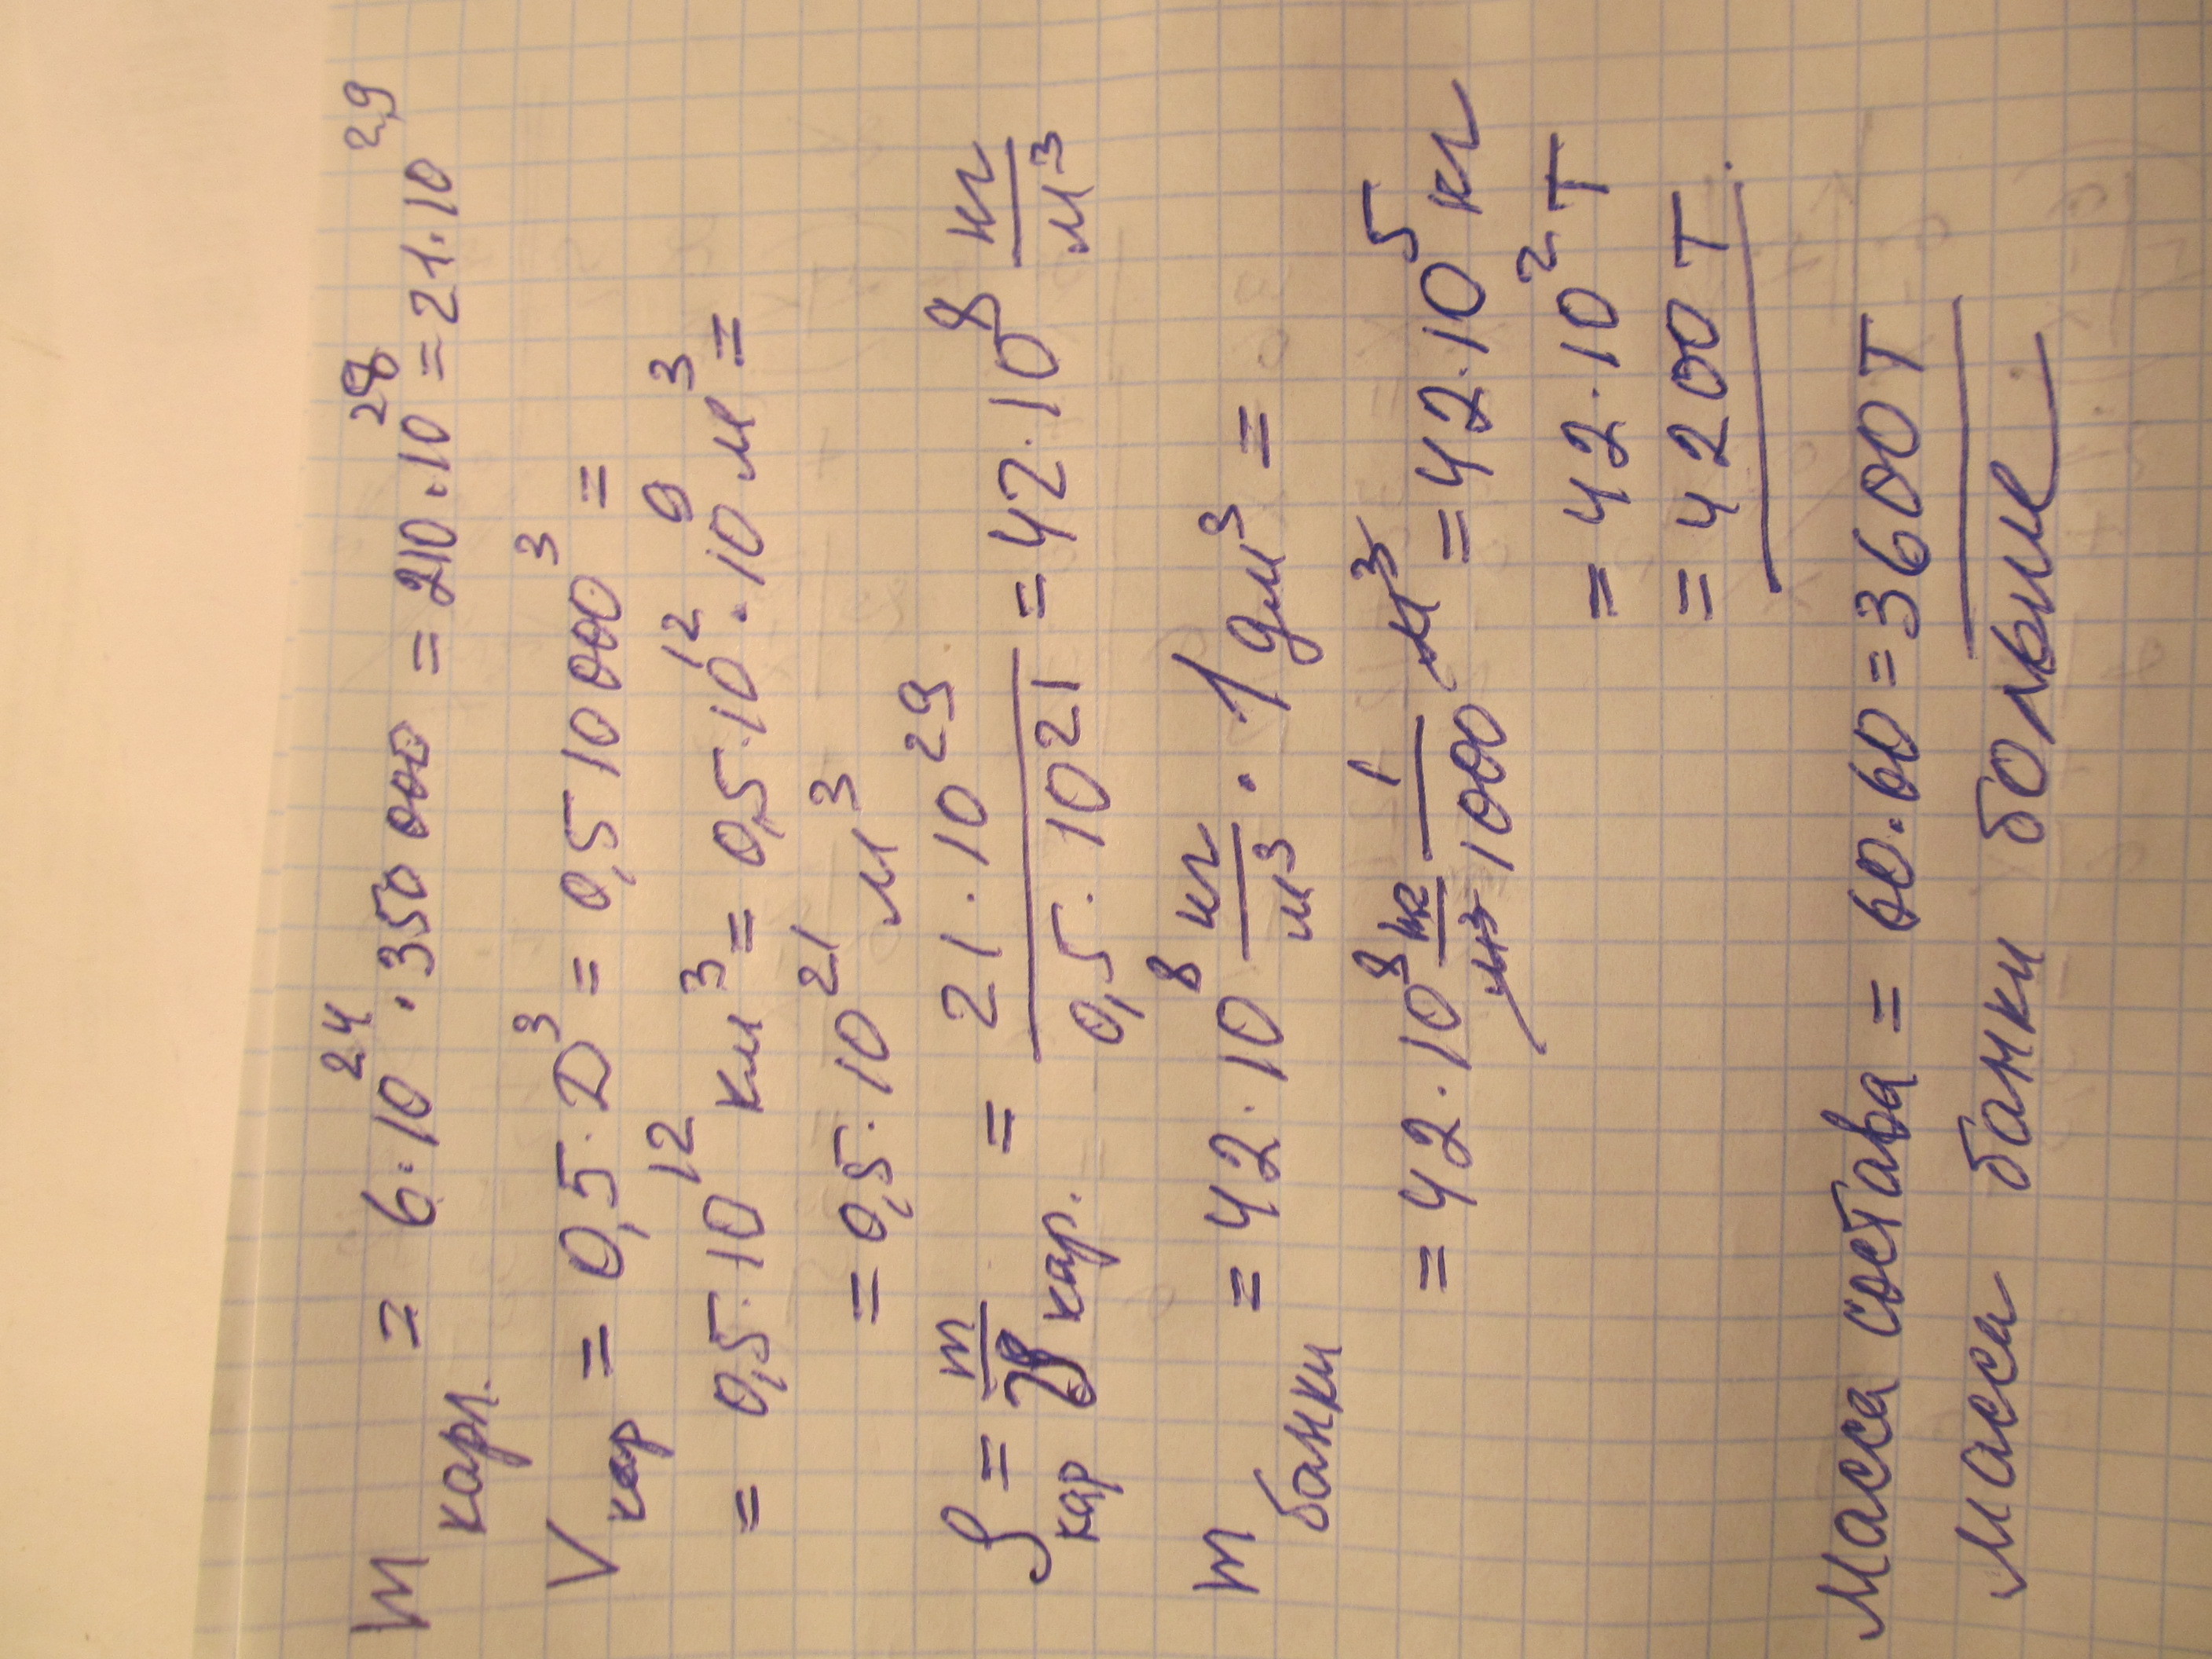 m карл. = 6·10²⁴·350000 = 210·10²⁸ = 21·10²⁹
V кар = 0,5·D³ = 0,5 10000³ =
= 0,5·10¹² км³ = 0,5·10¹²·10⁹ м³ =
= 0,5·10²¹ м³
ρ кар = m/V кар. = 21·10²⁹/0,5·10²¹ = 42·10⁸ кг/м³
m банки = 42·10⁸ кг/м³ · 1 дм³ =
= 42·10⁸ кг/м³ · 1/1000 м³ = 42·10⁵ кг
= 42·10² Т
= 4200 Т.
Масса состава = 60·60 = 3600 Т
Масса банки больше